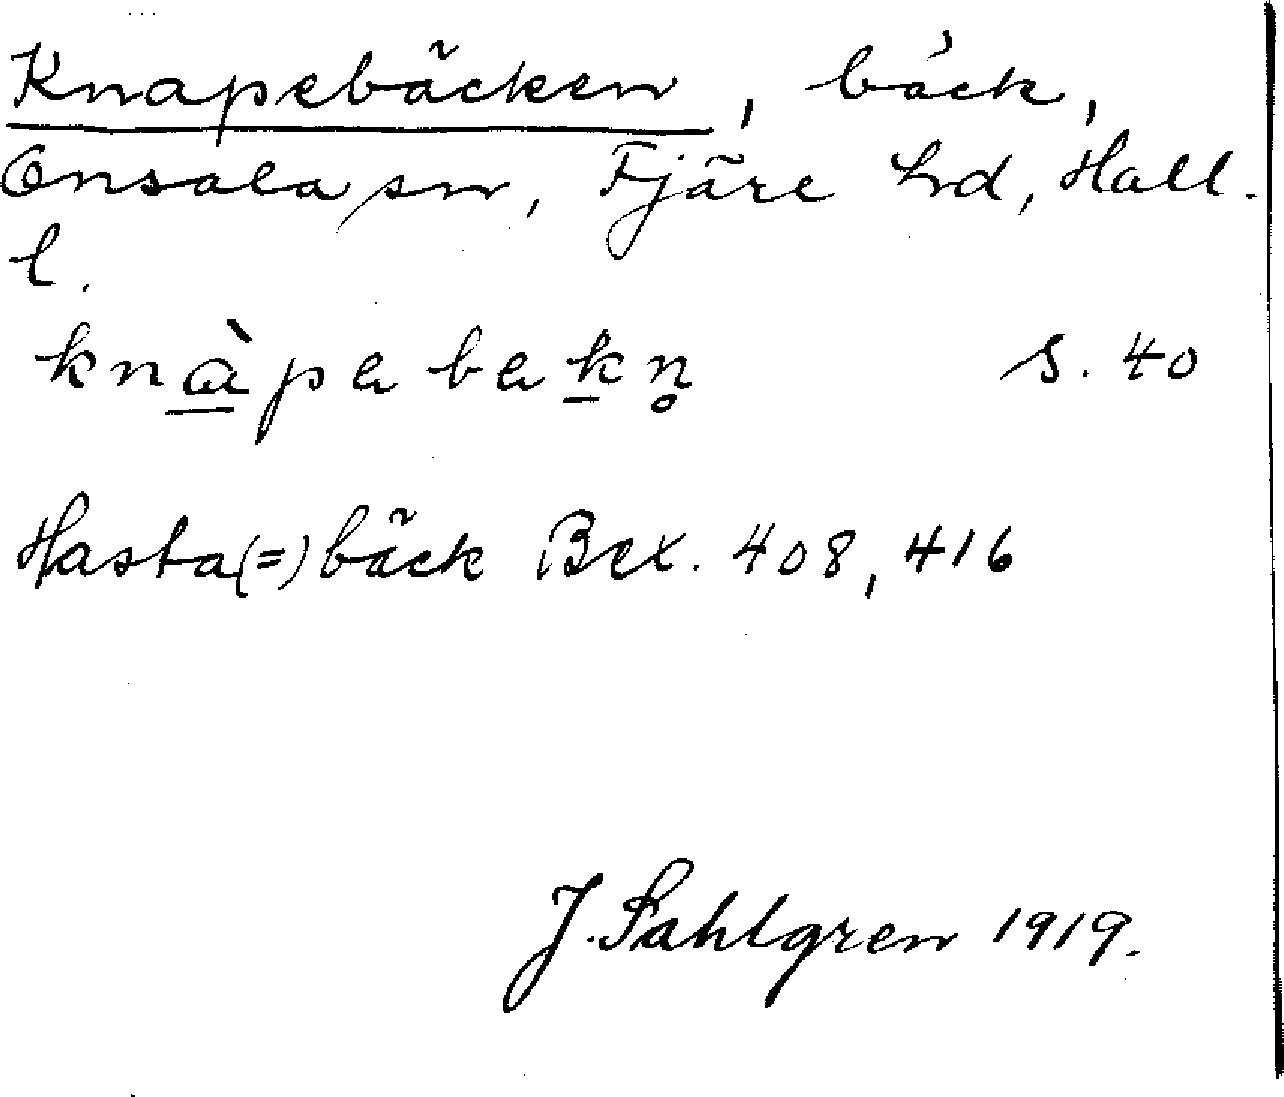 Knapebäcken, bäck,
Onsala sn, Fjäre hd, Hall.
l.
knàpabakn̥ S. 40
Hasta(=)bäck Bex. 408, 416
J. Sahlgren 1919.